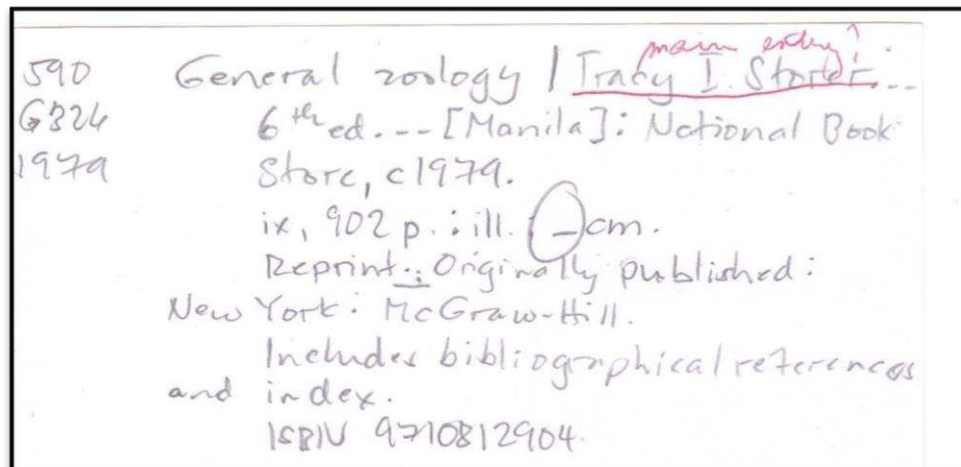 main entry?
590 General zoology / Tracy I. Storer...
G324 6th ed. -- [Manila] : National Book
1979 Store, c1979.
ix, 902 p. : ill. ; _ cm.
Reprint. : Originally published :
New York : McGraw-Hill.
Includes bibliographical references
and index.
ISBN 9710812904.